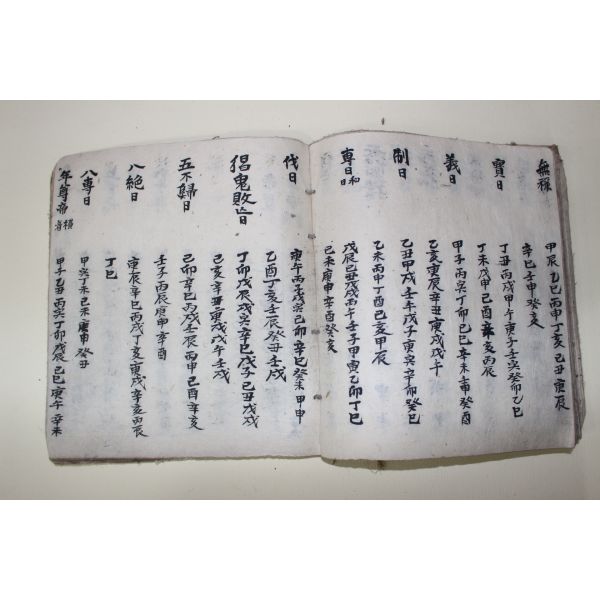 無祿
甲辰乙巳丙申丁亥己丑庚辰
辛巳壬申癸亥
寶日
丁丑丙戌甲午庚子壬寅癸卯乙巳
丁未戊申己酉辛亥丙辰
義日
甲子丙寅丁卯己巳辛未壬申癸酉
乙亥庚辰辛丑庚戌戊午
制日
乙丑甲戌壬午戊子庚寅辛卯癸巳
乙未丙申丁酉己亥甲辰
專日和日
戊辰己丑戊戌丙午壬子甲寅乙卯丁巳
己未庚申辛酉癸亥
伐日
庚午丙子戊寅己卯辛巳癸未甲申
乙酉丁亥壬辰癸丑壬戌
猖鬼敗亡日
丁卯戊辰戊寅辛巳戊子己丑戊戌
己亥辛丑庚戌戊午壬戌
五不歸日
己卯辛巳丙戌壬辰丙申己酉辛亥
壬子丙辰庚申辛酉
八絶日
庚辰辛巳丙戌丁亥庚戌辛亥丙辰
丁巳
八專日
甲寅丁未己未庚申癸丑
年尊帝
甲子乙丑丙寅丁卯戊辰己巳庚午辛未